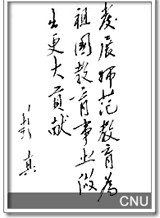 发展师范教育为
祖國教育事业做
出更大贡献
彭真
CNU